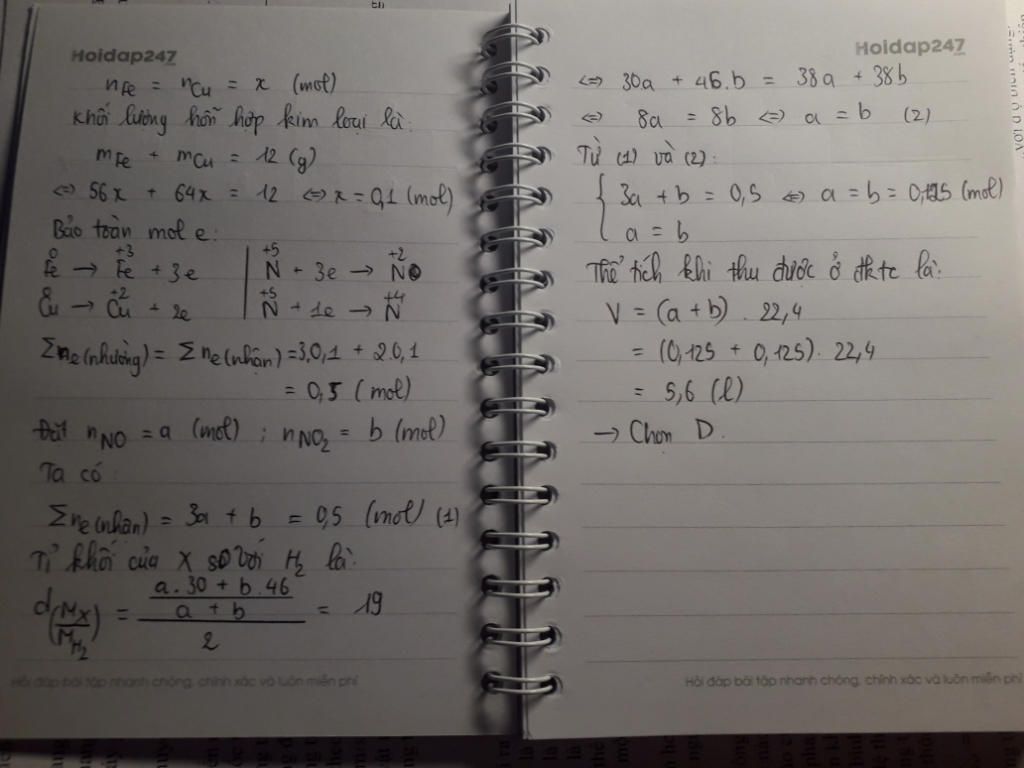 Hoidap247
n_Fe = n_Cu = x (mol)
Khối lượng hỗn hợp kim loại là:
m_Fe + m_Cu = 12 (g)
<=> 56x + 64x = 12 <=> x = 0,1 (mol)
Bảo toàn mol e:
Fe⁰ → Fe⁺³ + 3e | N⁺⁵ + 3e → N⁺²
Cu⁰ → Cu⁺² + 2e | N⁺⁵ + 1e → N⁺⁴
Σn_e(nhường) = Σn_e(nhận) = 3.0,1 + 2.0,1
= 0,5 (mol)
Đặt n_NO = a (mol) ; n_NO₂ = b (mol)
Ta có:
Σn_e(nhận) = 3a + b = 0,5 (mol) (1)
Tỉ khối của X so với H₂ là:
d(M_X/M_H₂) = ((a.30 + b.46)/(a + b))/2 = 19
Hỏi đáp bài tập nhanh chóng, chính xác và luôn miễn phí
Hoidap247
<=> 30a + 46.b = 38a + 38b
<=> 8a = 8b <=> a = b (2)
Từ (1) và (2):
{ 3a + b = 0,5 <=> a = b = 0,125 (mol)
a = b
Thể tích khí thu được ở đktc là:
V = (a + b) . 22,4
= (0,125 + 0,125). 22,4
= 5,6 (l)
→ Chọn D.
Hỏi đáp bài tập nhanh chóng, chính xác và luôn miễn phí